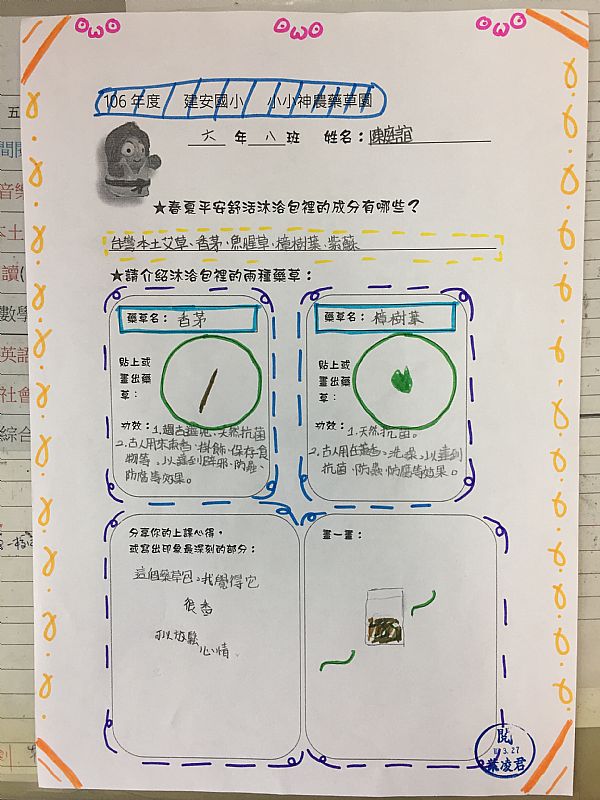 OwO OwO OwO
106年度 建安國小 小小神農藥草園
六 年 八 班 姓名：陳庭誼
★春夏平安舒活沐浴包裡的成分有哪些？
台灣本土艾草、香茅、魚腥草、樟樹葉、紫蘇
★請介紹沐浴包裡的兩種藥草：
藥草名：香茅
貼上或
畫出藥
草：
功效：1. 天然抗菌
2.古人用來熏香、保存食
物等，以達到避邪、防蟲、
防腐等效果。
藥草名：樟樹葉
貼上或
畫出藥
草：
功效：1.天然抗菌。
2.古人用在薰香、洗澡，以達到
抗菌、防蟲、防腐等效果。
分享你的上課心得，
或寫出印象最深刻的部分：
這個藥草包，我覺得它
很香
可以放鬆
心情
畫一畫：
閱
3.27
葉凌君
五
音樂
本土
讀
數學
英語
社會
綜合